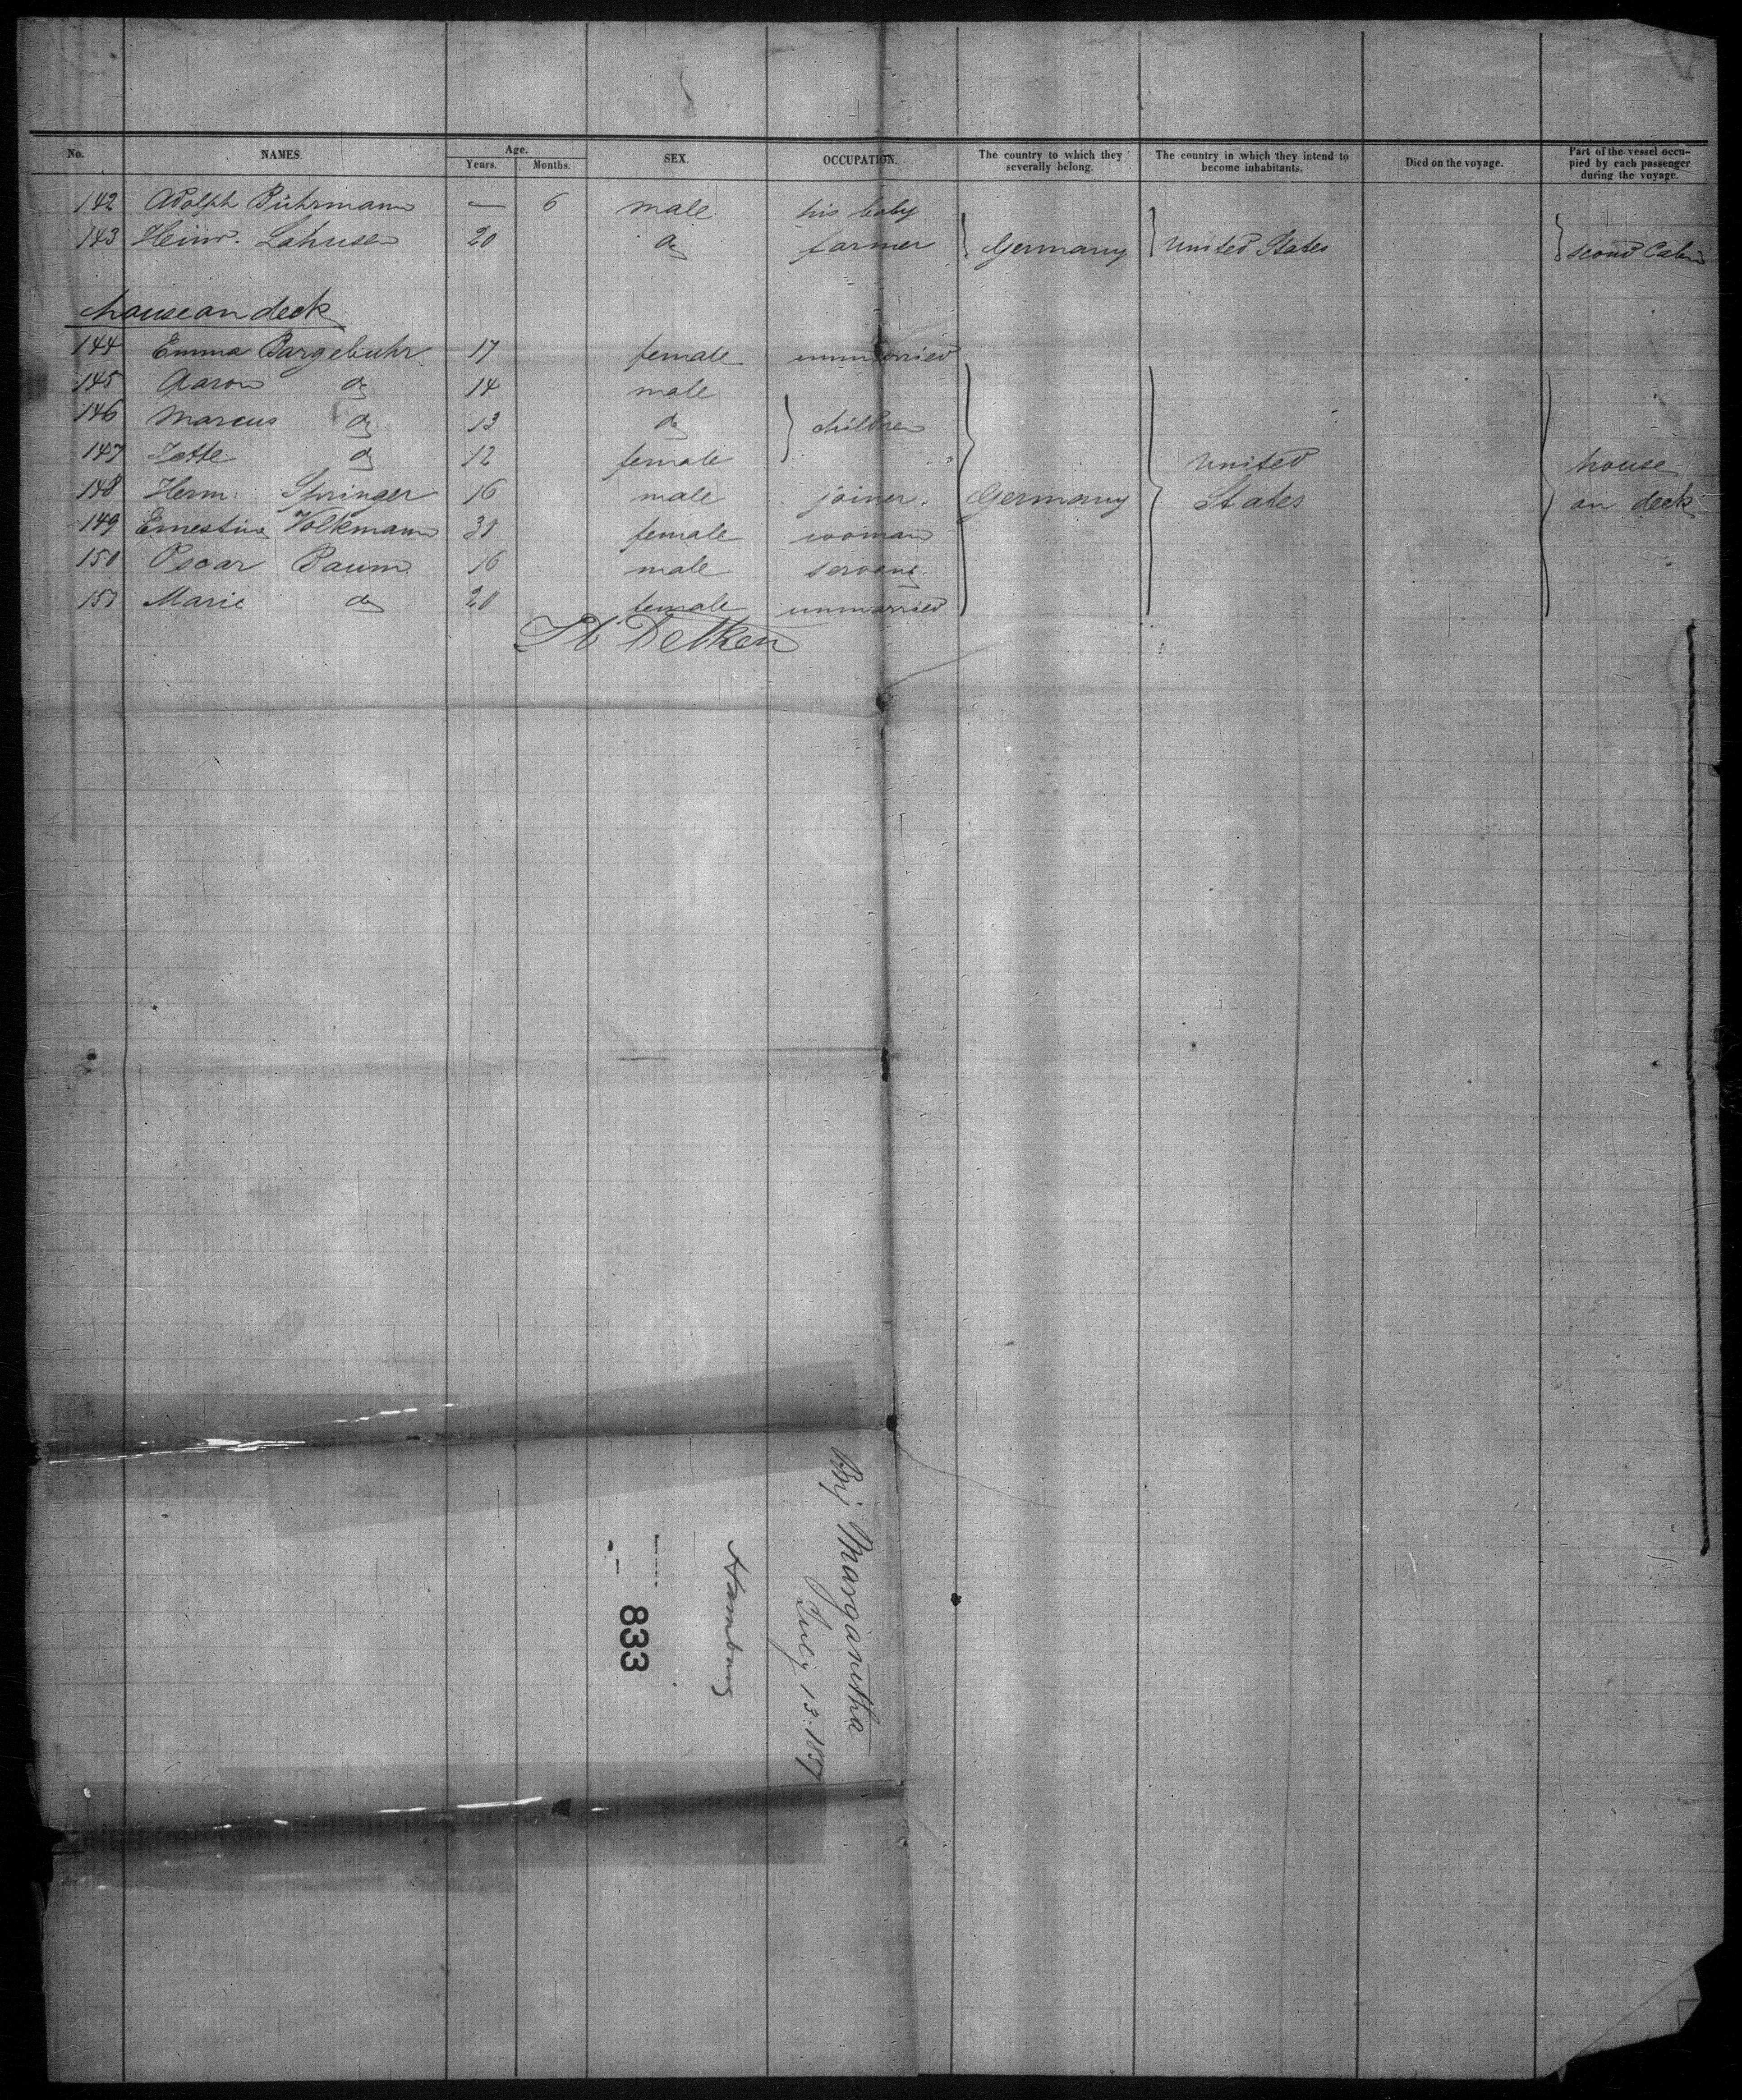 No. NAMES. Age. Years. Months. SEX. OCCUPATION. The country to which they severally belong. The country in which they intend to become inhabitants. Died on the voyage. Part of the vessel occupied by each passenger during the voyage.
142 Adolph Bührmann — 6 male his baby
143 Heinr. Lahusen 20 do farmer } Germany } United States } second Cabin
house on deck
144 Emma Bargebuhr 17 female unmarried
145 Aaron do 14 male
146 Marcus do 13 do } children
147 Jette do 12 female United house
148 Herm. Springer 16 male joiner. Germany States on deck
149 Ernestine Volkmann 30 female woman
150 Oscar Baum 16 male servant
151 Marie do 20 female unmarried
Detken
Margaretha
July 13. 1857
Hamburg
833